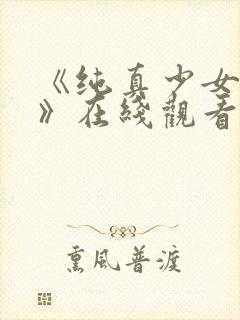 《纯真少女
》在綫觀看
熏風普渡